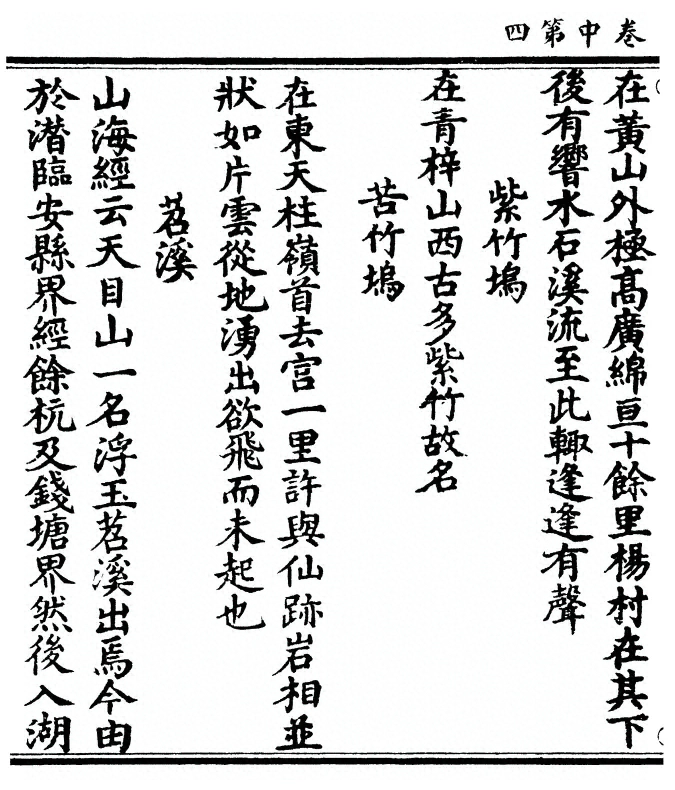 卷中第四
在黃山外極髙廣綿亘十餘里楊村在其下
後有響水石溪流至此輙逢逢有聲
紫竹塢
在青梓山西古多紫竹故名
苦竹塢
在東天柱嶺首去宫一里許與仙跡岩相並
狀如片雲從地湧出欲飛而未起也
苕溪
山海經云天目山一名浮玉苕溪出焉今由
於潛臨安縣界經餘杭及錢塘界然後入湖